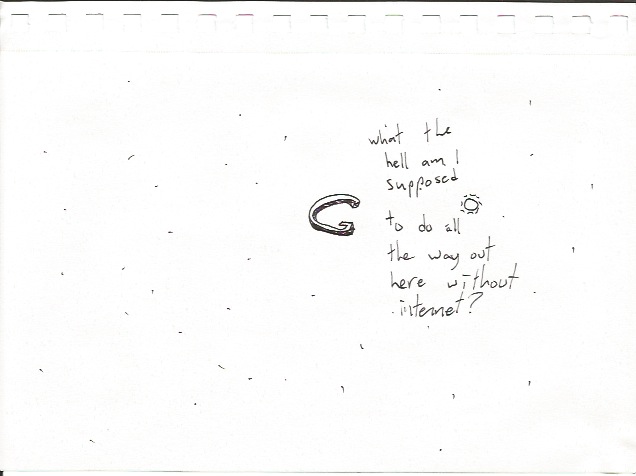 G
what the
hell am I
supposed
to do all
the way out
here without
internet?